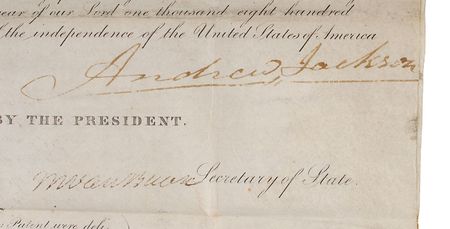 year of our Lord one thousand eight hundred
the independence of the United States of America
Andrew Jackson
BY THE PRESIDENT.
M Van Buren Secretary of State.
Patent were